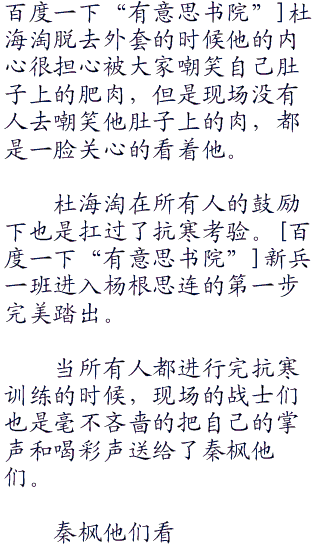 百度一下“有意思书院”]杜
海淘脱去外套的时候他的内
心很担心被大家嘲笑自己肚
子上的肥肉，但是现场没有
人去嘲笑他肚子上的肉，都
是一脸关心的看着他。
杜海淘在所有人的鼓励
下也是扛过了抗寒考验。[百
度一下“有意思书院”]新兵
一班进入杨根思连的第一步
完美踏出。
当所有人都进行完抗寒
训练的时候，现场的战士们
也是毫不吝啬的把自己的掌
声和喝彩声送给了秦枫他
们。
秦枫他们看